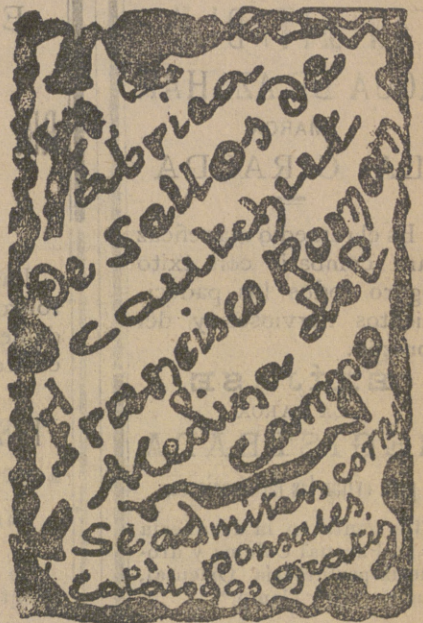 Fábrica
De Sellos de
cautchuck
Francisco Roman
Medina del
Campo
Se admiten corres
ponsales.
Catálogos gratis